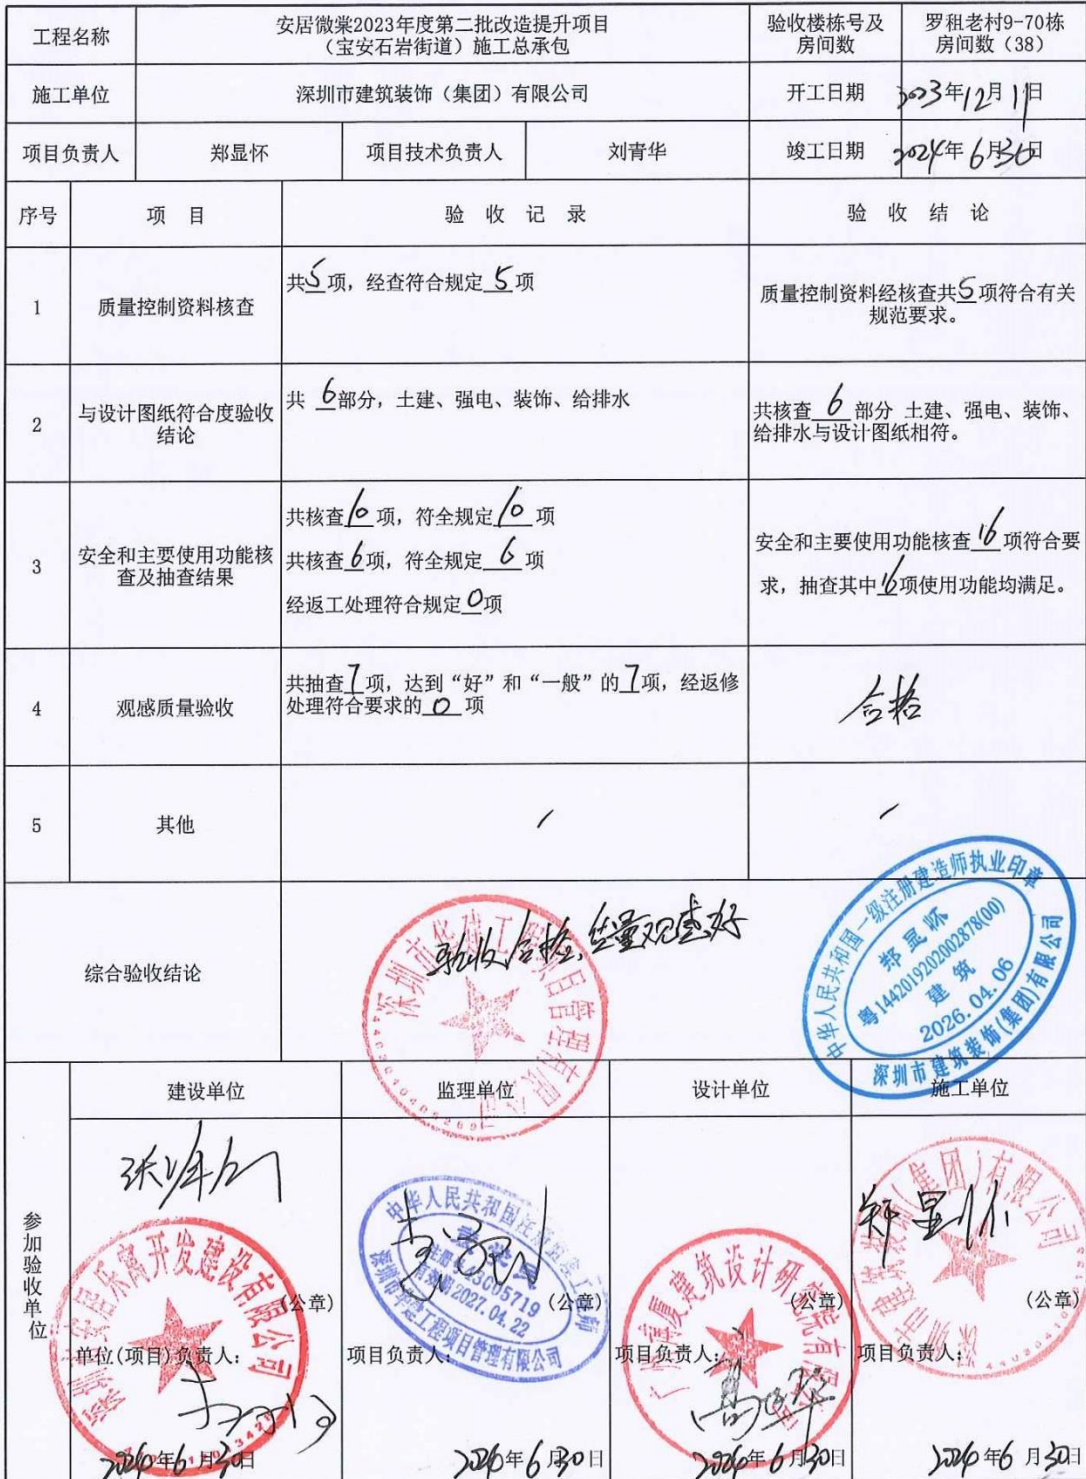 工程名称
安居微棠2023年度第二批改造提升项目
（宝安石岩街道）施工总承包
验收楼栋号及
房间数
罗租老村9-70栋
房间数（38）
施工单位
深圳市建筑装饰（集团）有限公司
开工日期
2023年12月11日
项目负责人
郑显怀
项目技术负责人
刘青华
竣工日期
2024年6月30日
序号
项 目
验 收 记 录
验 收 结 论
1
质量控制资料核查
共5项，经查符合规定5项
质量控制资料经核查共5项符合有关
规范要求。
2
与设计图纸符合度验收
结论
共 6部分，土建、强电、装饰、给排水
共核查 6 部分 土建、强电、装饰、
给排水与设计图纸相符。
3
安全和主要使用功能核
查及抽查结果
共核查10项，符全规定10项
共核查6项，符全规定6项
经返工处理符合规定0项
安全和主要使用功能核查16项符合要
求，抽查其中16项使用功能均满足。
4
观感质量验收
共抽查7项，达到“好”和“一般”的7项，经返修
处理符合要求的0项
合格
5
其他
/
/
综合验收结论
验收合格，质量观感好
深圳市华建工程项目管理有限公司
中华人民共和国一级注册建造师执业印章
郑显怀
粤1442019202002878(00)
建筑
2026.04.06
深圳市建筑装饰(集团)有限公司
参加验收单位
建设单位
监理单位
设计单位
施工单位
郑显怀
中华人民共和国注册监理工程师
2027.04.22
深圳市华建工程项目管理有限公司
广州宝厦建筑设计研究院有限公司
(公章)
(公章)
(公章)
(公章)
单位(项目)负责人：
项目负责人：
项目负责人：
项目负责人：
年6月30日
年6月30日
年6月30日
年6月30日